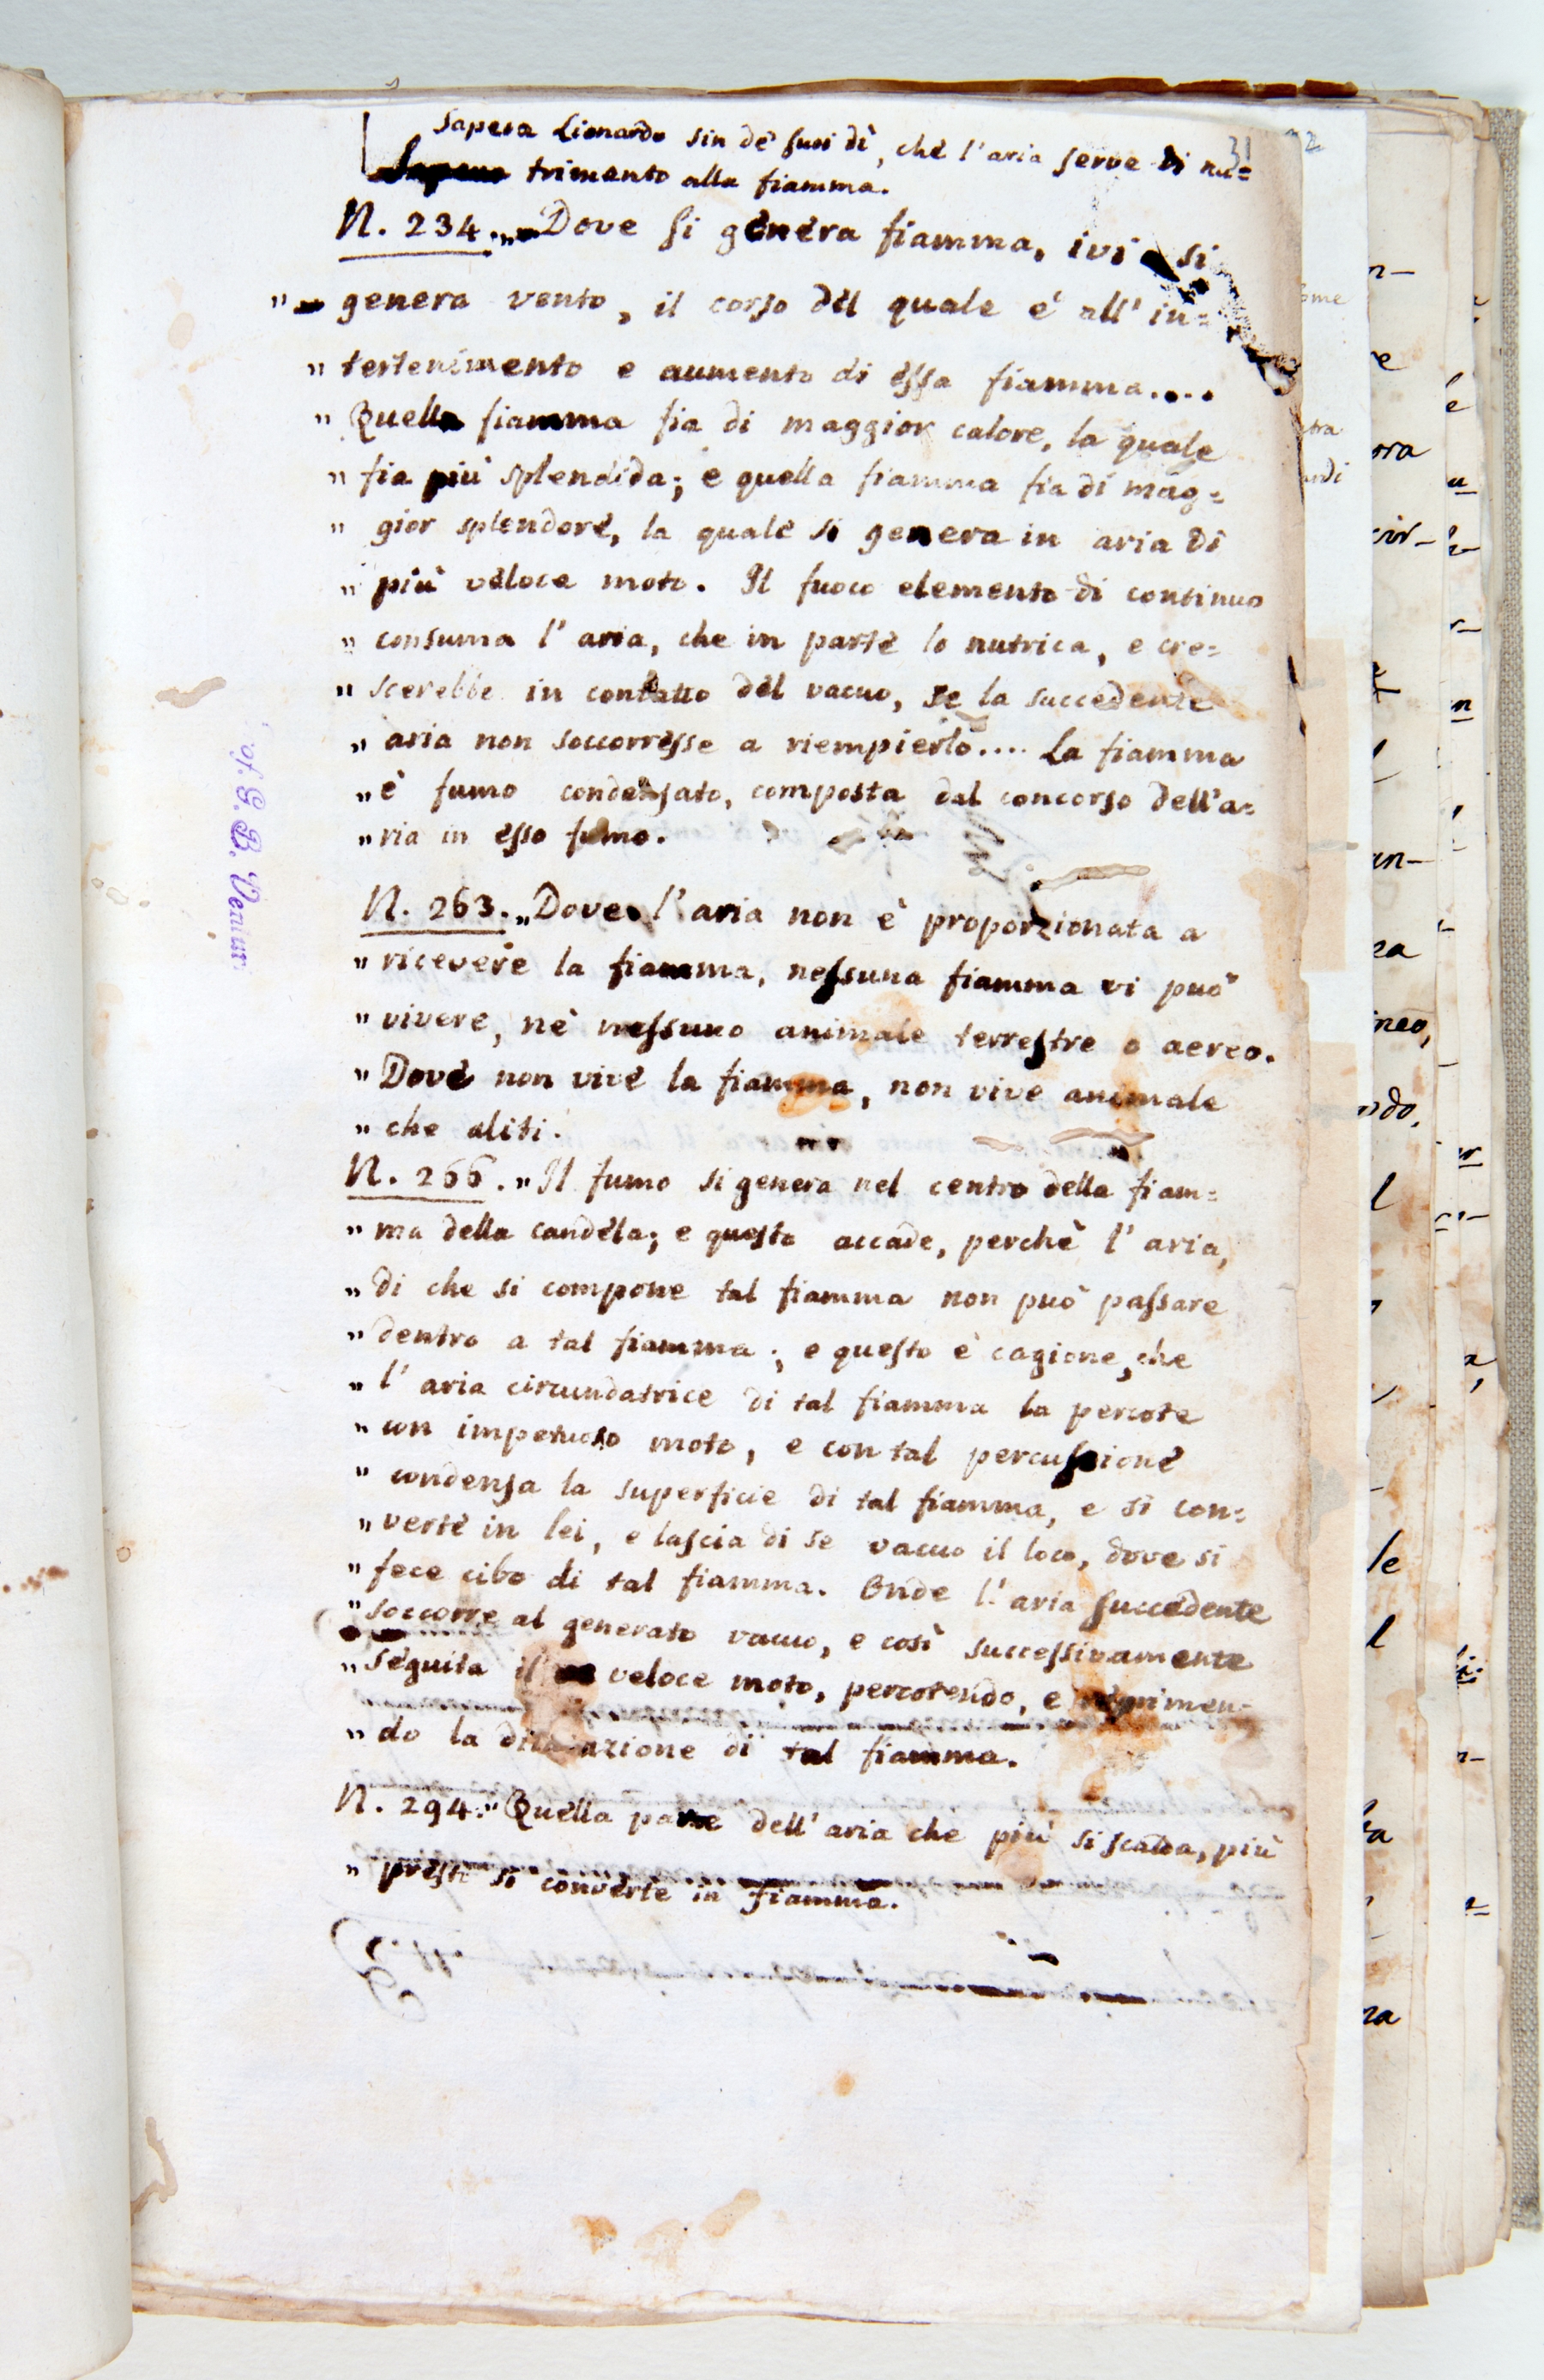 31
Sapeva Lionardo sin de' suoi dì, che l'aria serve di nu=
trimento alla fiamma.
N. 234. „Dove si genera fiamma, ivi si
„ genera vento, il corso del quale è all'in=
„ tertenimento e aumento di essa fiamma....
„ Quella fiamma fia di maggior calore, la quale
„ fia più splendida; e quella fiamma fia di mag=
„ gior splendore, la quale si genera in aria di
„ più veloce moto. Il fuoco elemento di continuo
„ consuma l'aria, che in parte lo nutrica, e cre=
„ scerebbe in contatto del vacuo, se la succedente
„ aria non soccorresse a riempierlo.... La fiamma
„ è fumo condensato, composta dal concorso dell'a=
„ ria in esso fumo.
N. 263. „Dove l'aria non è proporzionata a
„ ricevere la fiamma, nessuna fiamma vi può
„ vivere, nè nessuno animale terrestre o aereo.
„ Dove non vive la fiamma, non vive animale
„ che aliti.
N. 266. „Il fumo si genera nel centro della fiam=
„ ma della candela; e questo accade, perchè l'aria,
„ di che si compone tal fiamma non può passare
„ dentro a tal fiamma; e questo è cagione, che
„ l'aria circundatrice di tal fiamma la percote
„ con impetuoso moto, e con tal percussione
„ condensa la superficie di tal fiamma, e si con=
„ verte in lei, e lascia di se vacuo il loco, dove si
„ fece cibo di tal fiamma. Onde l'aria succedente
„ soccorre al generato vacuo, e così successivamente
„ seguita il veloce moto, percotendo, e reprimen=
„ do la dilatazione di tal fiamma.
N. 294. „Quella parte dell'aria che più si scalda, più
„ presto si converte in fiamma.
G. B. Venturi